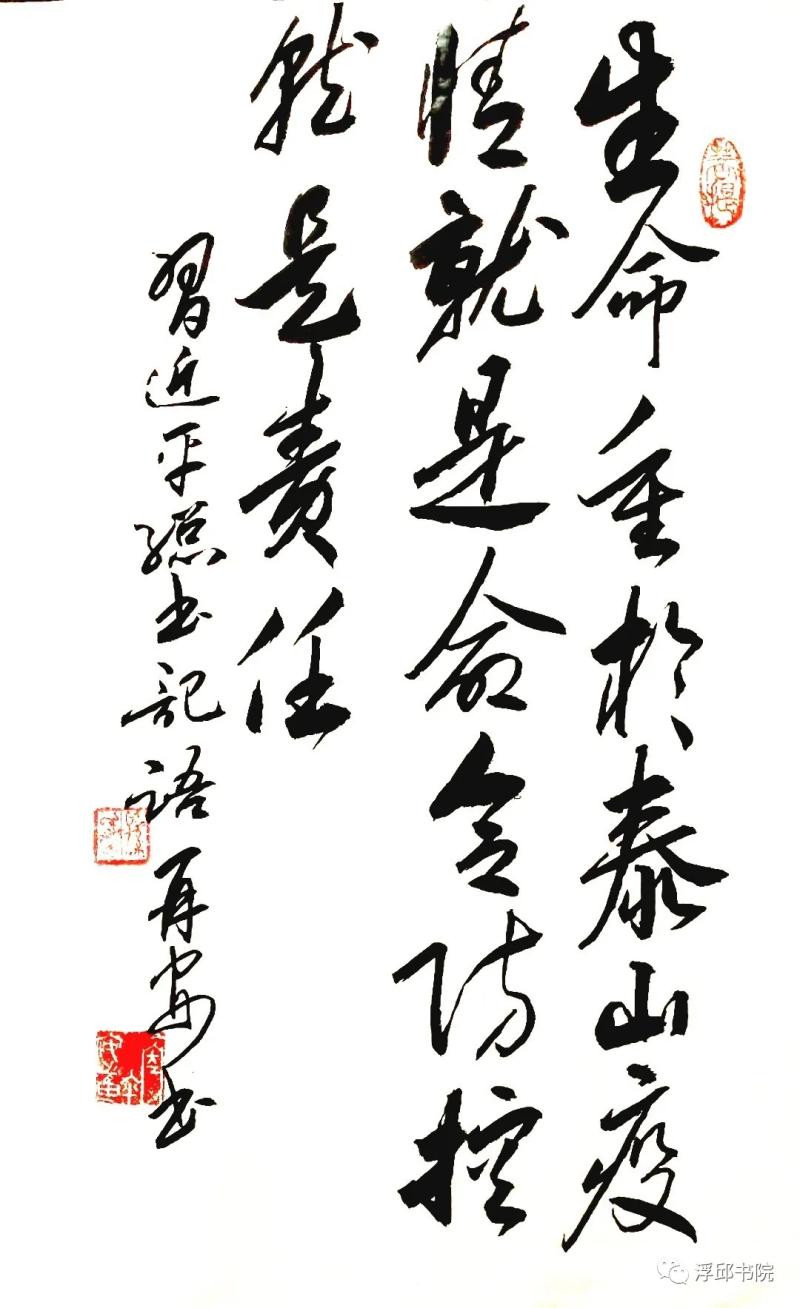 生命重於泰山疫
情就是命令防控
就是責任
習近平總书記語 再安书
浮邱书院